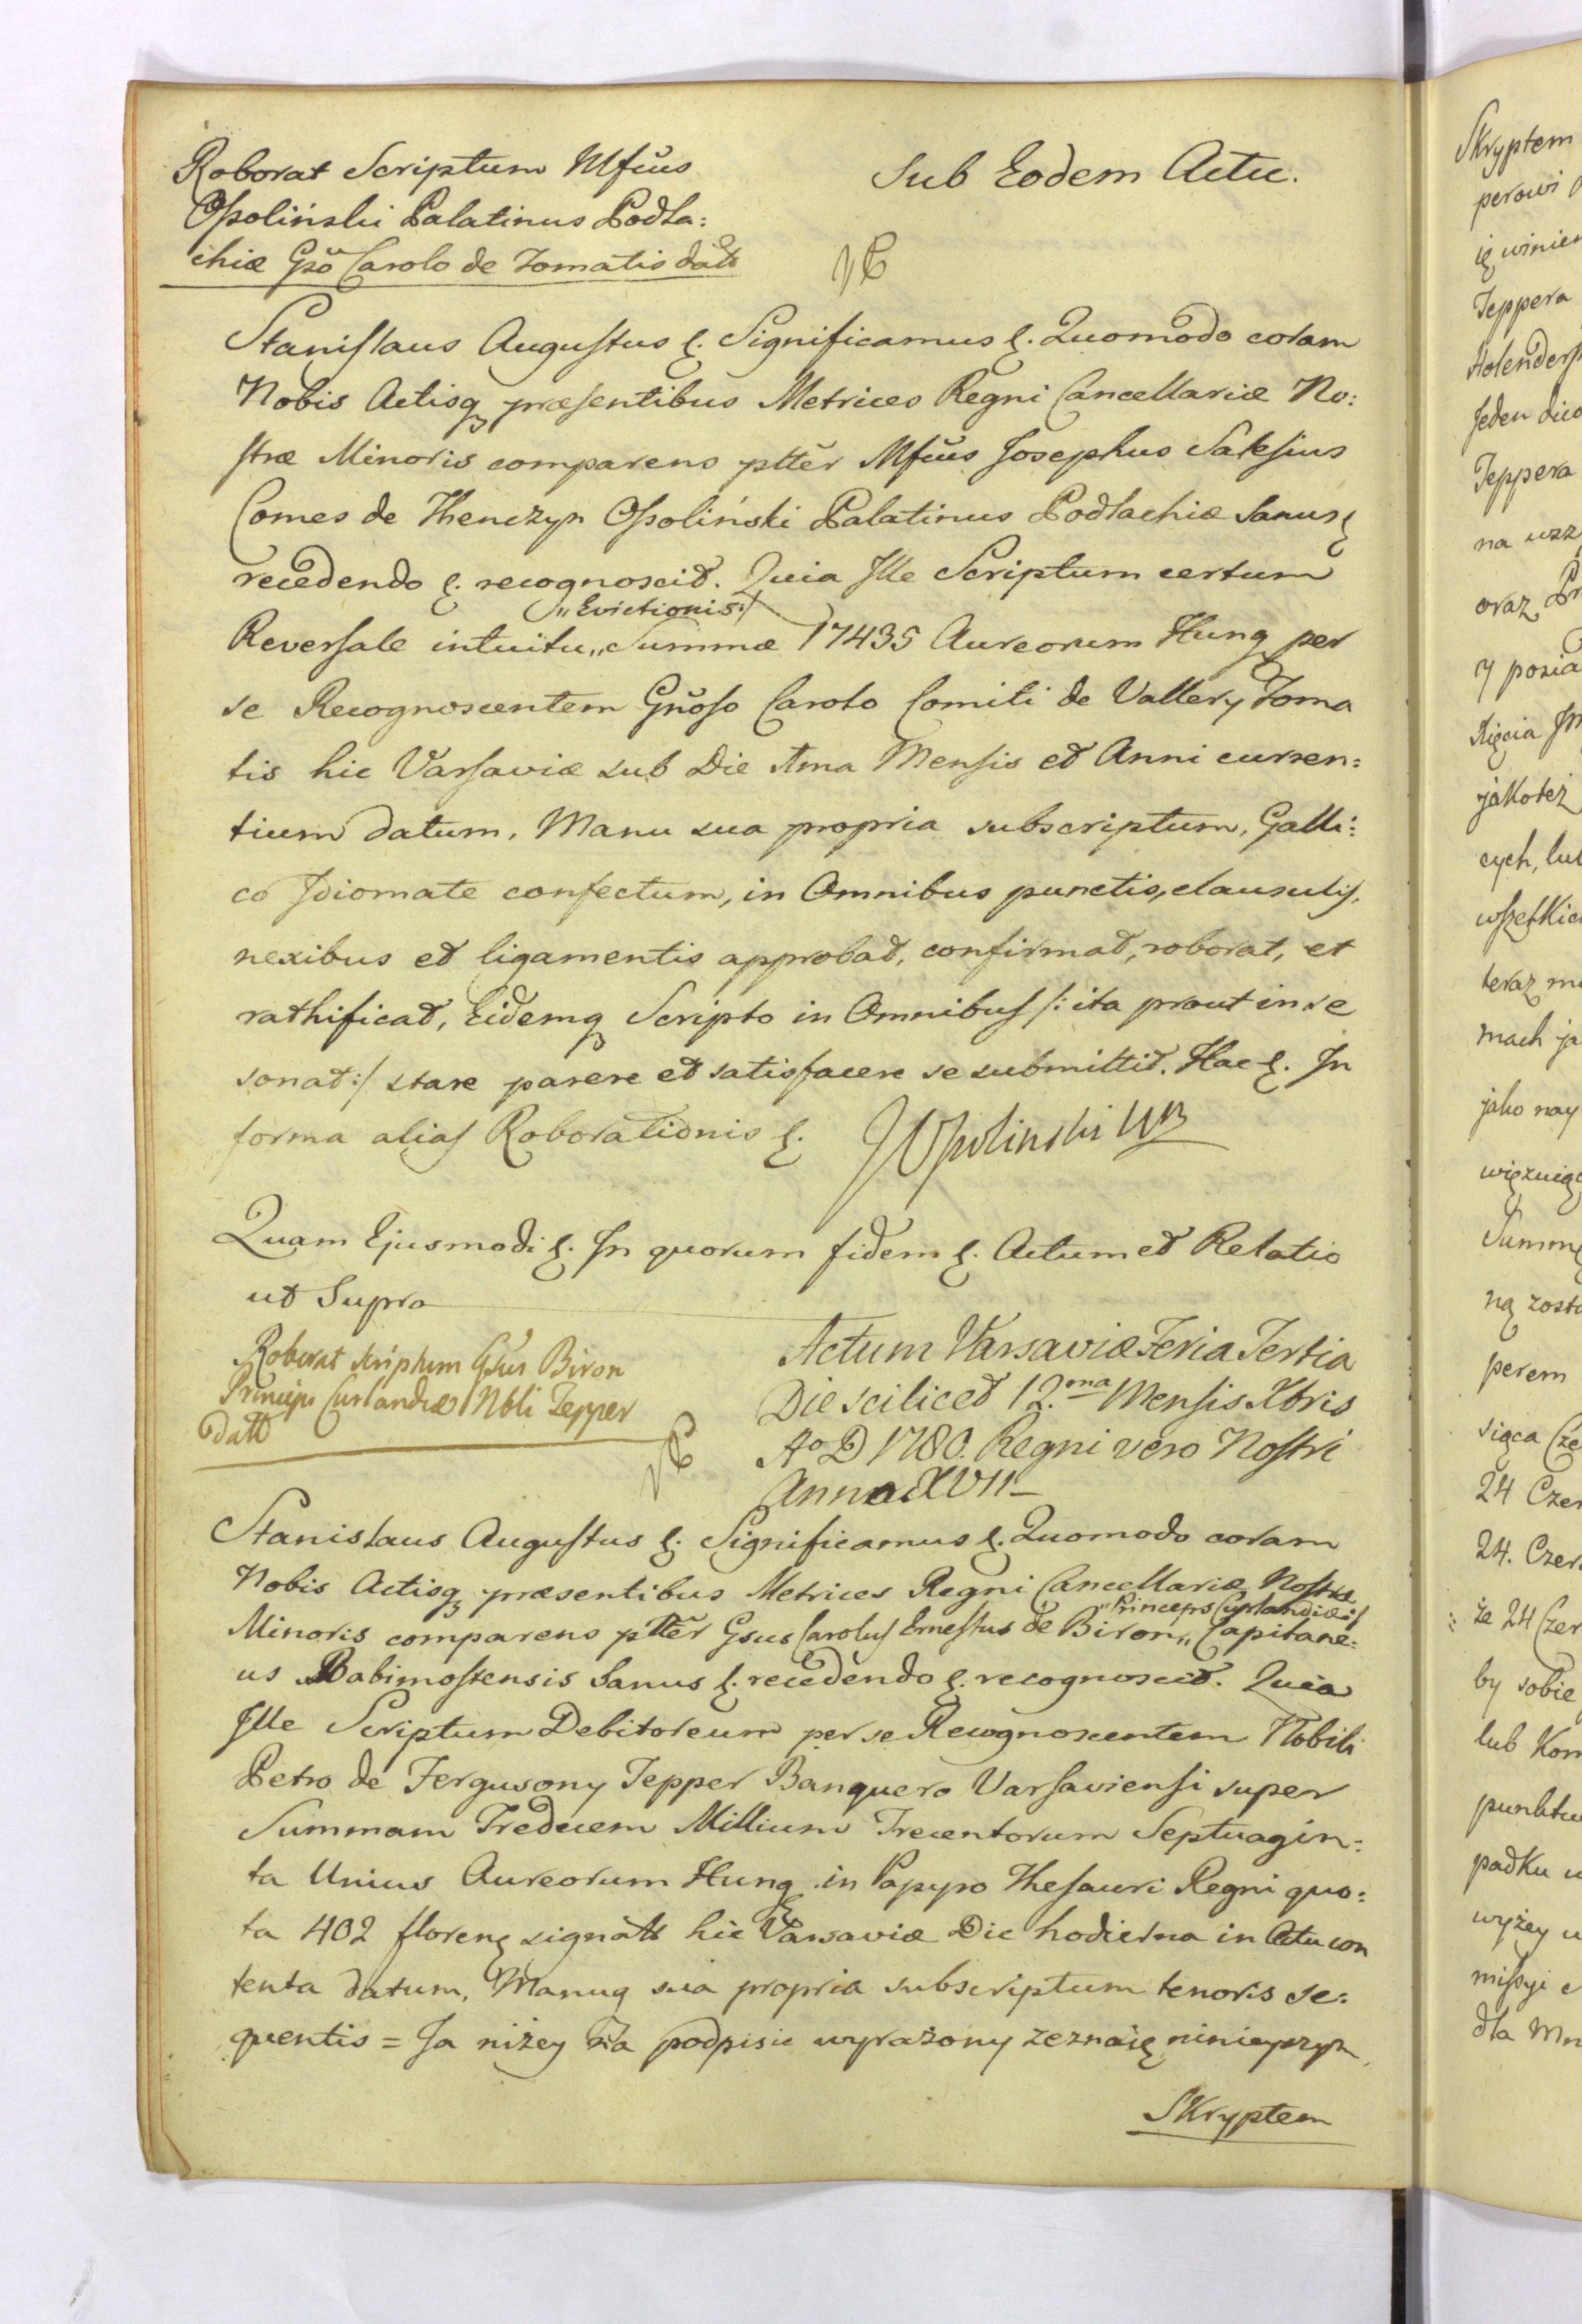 Roborat Scriptum Mfcus
Ossoliński Palatinus Podla:
chiæ Gso Carolo de Tomatis datt
Sub Eodem Actu.
Stanislaus Augustus &. Significamus &. Quomodo coram
Nobis Actisq præsentibus Metrices Regni Cancellariæ No:
stræ Minoris comparens ptter Mfcus Josephus Salesius
Comes de Thenczyn Ossoliński Palatinus Podlachiæ Sanus &
recedendo &. recognoscit. Quia Ille Scriptum certum
„Evictionis:/
Reversale intuitu„ Summæ 17435 Aureorum Hung per
se Recognoscentem Gnoso Carolo Comiti de Vallery Toma
tis hic Varsaviæ sub Die Ama Mensis et Anni curren:
tium datum, Manu sua propria subscriptum, Galli:
co Idiomate confectum, in Omnibus punctis, clausulis,
nexibus et ligamentis approbat, confirmat, roborat, et
rathificat, Eidemq Scripto in Omnibus /: ita prout in se
sonat :/ stare parere et satisfacere se submittit. Hac &. In
forma alias Roborationis &.
JOssolinski WP
Quam Ejusmodi &. In quorum fidem &. Actum et Relatio
ut Supra
Roborat scriptum Gsus Biron
Princips Curlandiæ Nbli Tepper
datt
Actum Varsaviæ Feria Tertia
Die scilicet 12.ma Mensis Xbris
Ao D 1780. Regni vero Nostri
Anno XVII
Stanislaus Augustus &. Significamus &. Quomodo coram
Nobis Actisq præsentibus Metrices Regni Cancellariæ Nostræ
„Princeps Curlandiæ:/
Minoris comparens ptter Gsus Carolus Ernestus de Biron„ Capitane:
us Babimostensis Sanus &. recedendo &. recognoscit. Quia
Ille Scriptum Debitoreum per se Recognoscentem Nobili
Petro de Fergusony Tepper Banquero Varsaviensi super
Summam Tredecem Millium Trecentorum Septuagin:
ta Unius Aureorum Hung in Papyro Thesauri Regni quo:
ta 402 floreng signatt hic Varsaviæ Die hodierna in Actu con
tenta datum, Manuq sua propria subscriptum tenoris se:
quentis = Ja niżey na podpisie wyrażony zeznaię ninieyszym
Skryptem
Skryptem
perowi
ię winien
Teppera
Holenders
Jeden dico
Teppera
na wsz
oraz Pr
y posia
Xięcia JM
jakoteż
cych, lub
wszelkie
teraz
mach ja
jako nay
więzuię
Summę
ną zosta
perem
siąca Cze
24 Czer
24. Czer
że 24 Czer
by sobie
lub Kom
punktu
padku
wyżey
missyi
dla